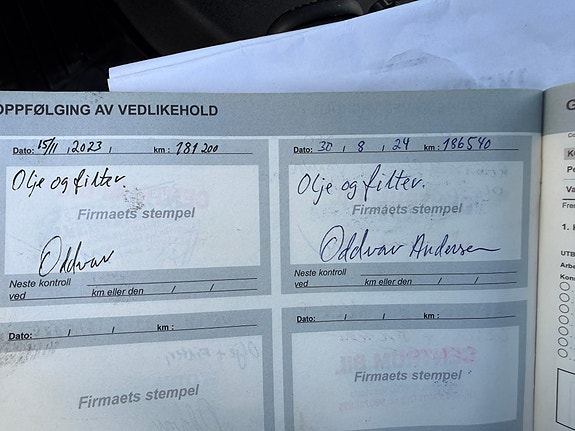 OPPFØLGING AV VEDLIKEHOLD
Dato: 15/11 / 2023 / km : 181 200
Olje og filter.
Firmaets stempel
Oddvar
Neste kontroll
ved km eller den / /
Dato: 30 / 8 / 24 km : 186540
Olje og filter.
Firmaets stempel
Oddvar Andersen
Neste kontroll
ved km eller den / /
Dato: / / km :
Firmaets stempel
Dato: / / km :
SENTRUM BIL
Firmaets stempel
G
K
Pe
Va
Fre
1. K
UTB
Arbe
Kon